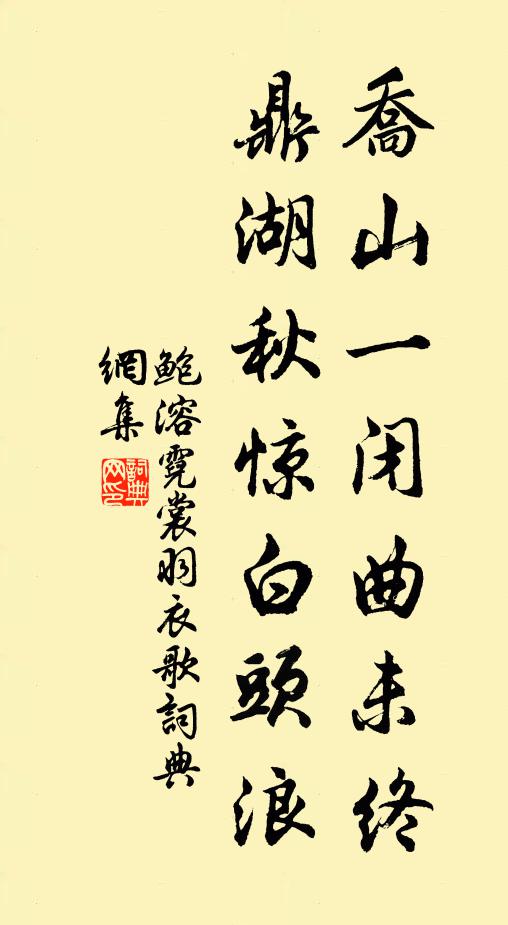 喬山一闭曲未终
鼎湖秋惊白頭浪
鲍溶霓裳羽衣歌詞典
網集
詞典
网印